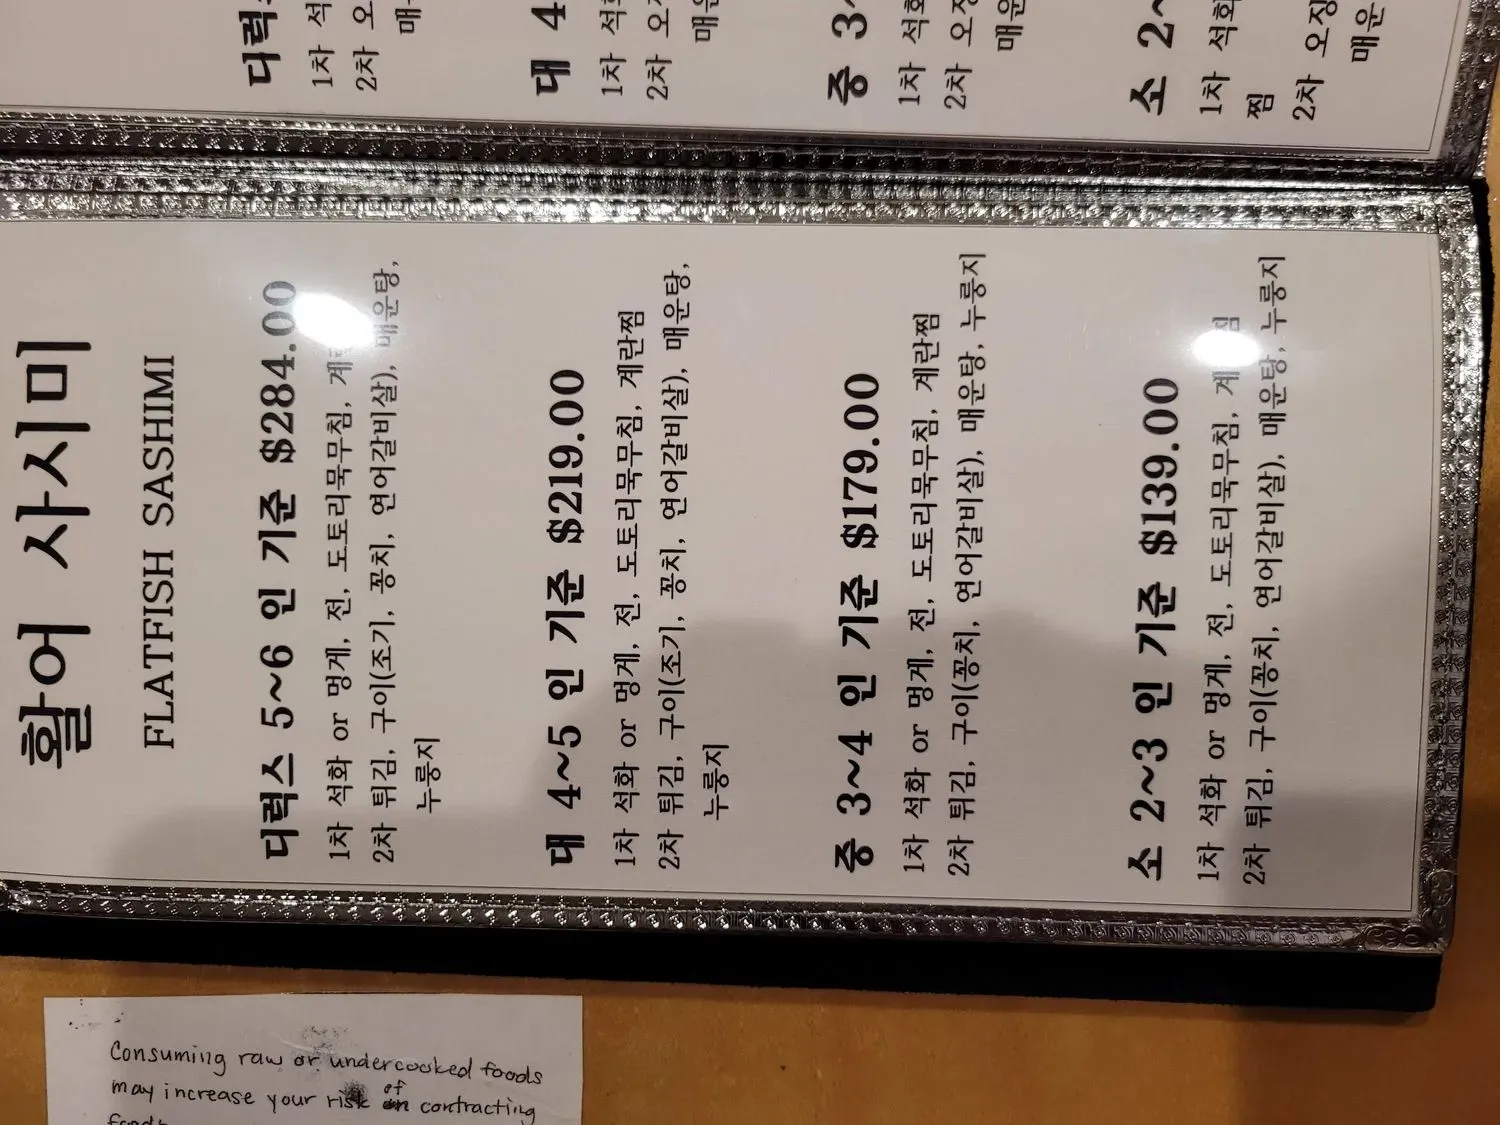 활어 사시미
FLATFISH SASHIMI
디럭스 5~6 인 기준 $284.00
1차 석화 or 멍게, 전, 도토리묵무침,
2차 튀김, 구이(조기, 꽁치, 연어갈비살), 매운탕,
누룽지
대 4~5 인 기준 $219.00
1차 석화 or 멍게, 전, 도토리묵무침, 계란찜
2차 튀김, 구이(조기, 꽁치, 연어갈비살), 매운탕,
누룽지
중 3~4 인 기준 $179.00
1차 석화 or 멍게, 전, 도토리묵무침, 계란찜
2차 튀김, 구이(꽁치, 연어갈비살), 매운탕, 누룽지
소 2~3 인 기준 $139.00
1차 석화 or 멍게, 전, 도토리묵무침,
2차 튀김, 구이(꽁치, 연어갈비살), 매운탕, 누룽지
1차
2차
대 4
1차
2차
매운
중 3~
1차 석화
2차 오징
매운
소 2~
1차 석화
찜
2차 오징
매운
Consuming raw or undercooked foods
may increase your risk of contracting